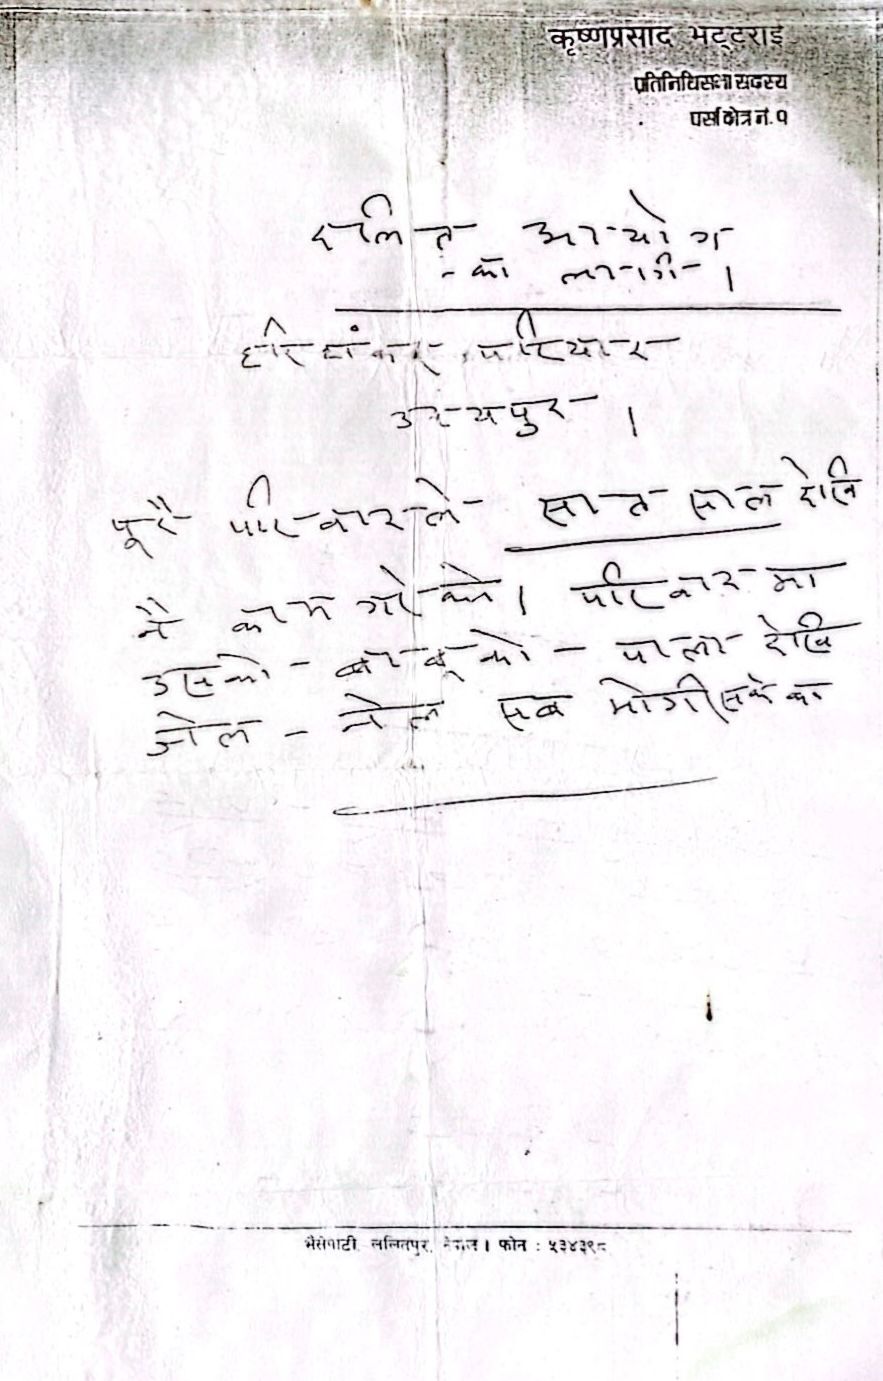 कृष्णप्रसाद भट्टराई
प्रतिनिधिसभा सदस्य
पर्सा क्षेत्र नं. १
दलित आयोग
का लागि ।
हरिशंकर परियार
उदयपुर ।
पूरै परिवारले सात साल देखि
नै काम गरेको । परिवारमा
उसको बाबुको पाला देखि
जेल - नेल सब भोगीसकेका
भैंसेपाटी, ललितपुर, नेपाल । फोन : ५३४३९८